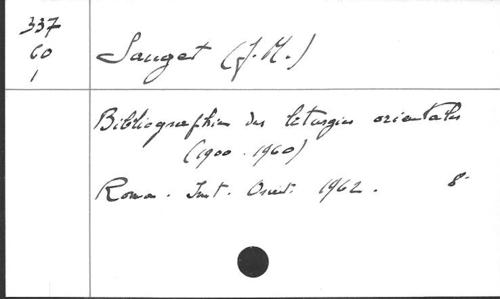 337
60
1
Sauget (J.M.)
Bibliographie des liturgies orientales
(1900-1960)
Roma. Inst. Orient. 1962. 8º